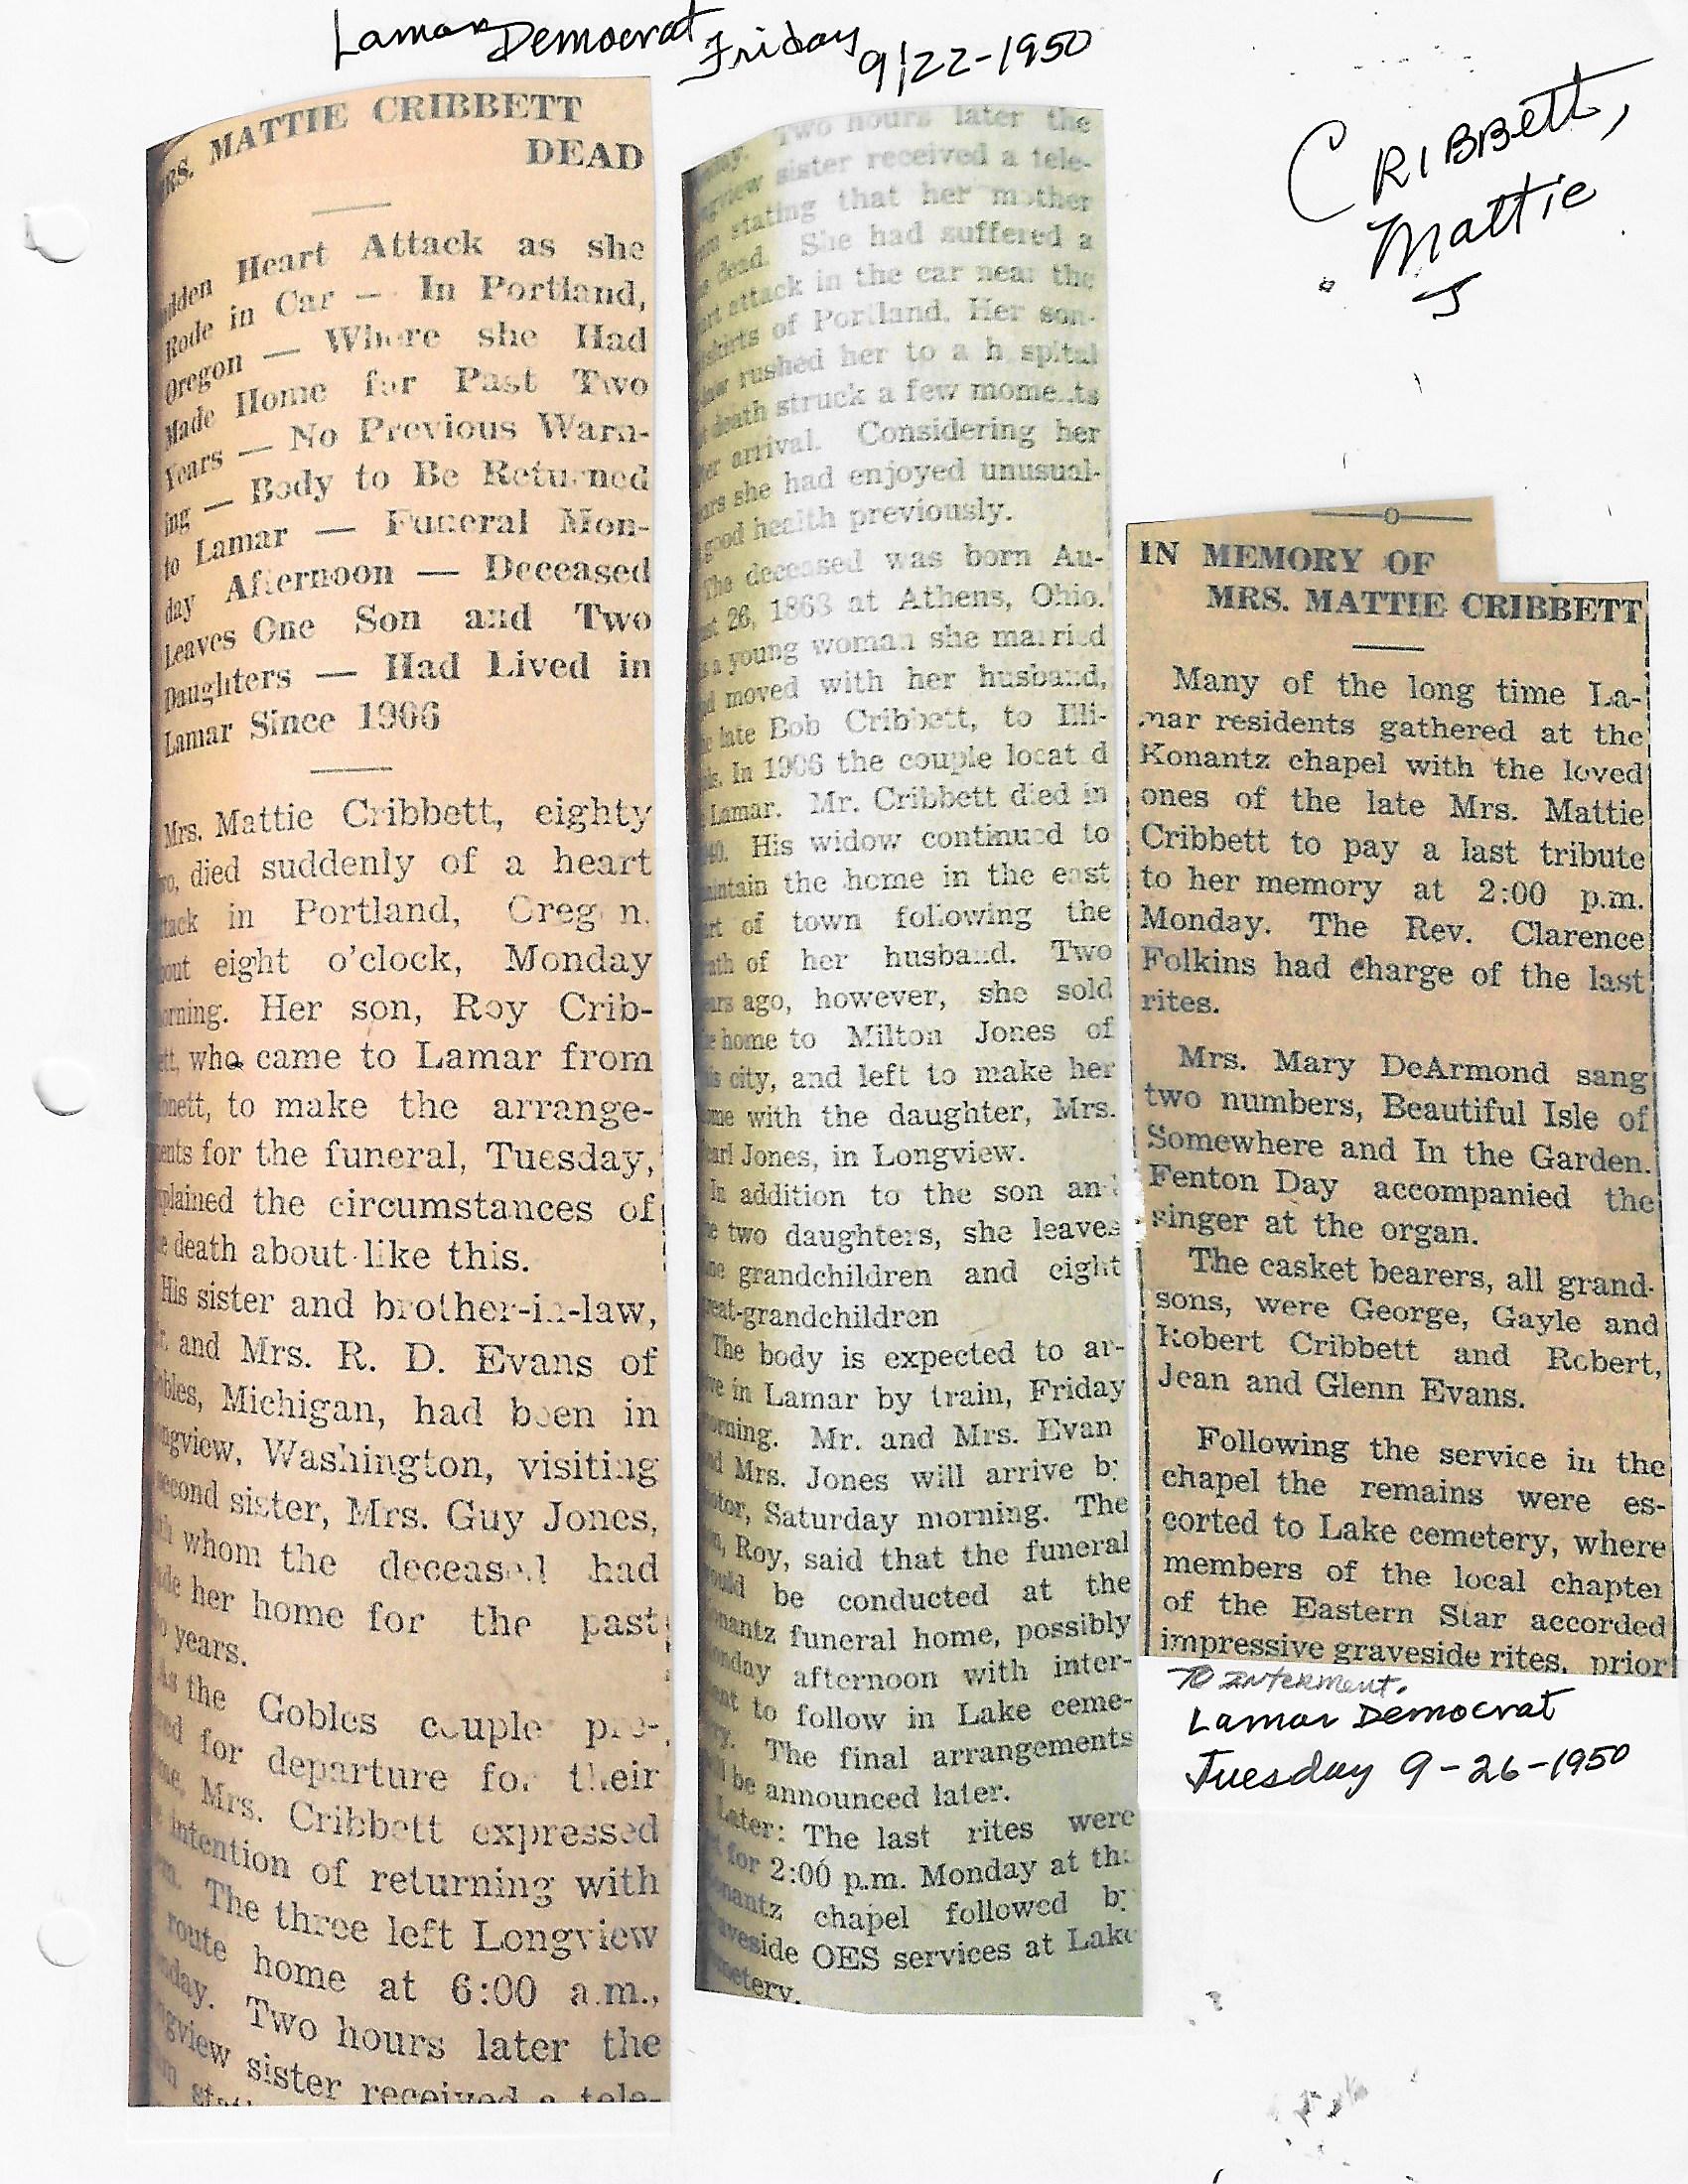 Lamar Democrat Friday 9/22-1950
CRIBBett,
Mattie
J
RS. MATTIE CRIBBETT
DEAD
dden Heart Attack as she
Rode in Car — In Portland,
Oregon — Where she Had
Made Home for Past Two
Years — No Previous Warn-
ing — Body to Be Returned
to Lamar — Funeral Mon-
day Afternoon — Deceased
Leaves One Son and Two
Daughters — Had Lived in
Lamar Since 1906
Mrs. Mattie Cribbett, eighty
wo, died suddenly of a heart
tack in Portland, Oreg n.
out eight o'clock, Monday
orning. Her son, Roy Crib-
ett, who came to Lamar from
onett, to make the arrange-
ents for the funeral, Tuesday,
plained the circumstances of
e death about like this.
His sister and brother-in-law,
r. and Mrs. R. D. Evans of
obles, Michigan, had been in
ngview, Washington, visiting
second sister, Mrs. Guy Jones,
th whom the deceased had
de her home for the past
o years.
As the Gobles couple pre-
red for departure for their
me, Mrs. Cribbett expressed
e intention of returning with
em. The three left Longview
route home at 6:00 a.m.,
nday. Two hours later the
ngview sister received a tele-
m stati
nday. Two hours later the
ngview sister received a tele-
am stating that her mother
s dead. She had suffered a
art attack in the car near the
tskirts of Portland. Her son-
law rushed her to a h spital
t death struck a few mome ts
ter arrival. Considering her
ars she had enjoyed unusual-
good health previously.
The deceased was born Au-
st 26, 1863 at Athens, Ohio.
s a young woman she married
d moved with her husband,
e late Bob Cribbett, to Illi-
is. In 1906 the couple locat d
Lamar. Mr. Cribbett died in
40. His widow continued to
aintain the home in the east
rt of town following the
ath of her husband. Two
ars ago, however, she sold
e home to Milton Jones of
is city, and left to make her
me with the daughter, Mrs.
earl Jones, in Longview.
In addition to the son and
e two daughters, she leaves
ne grandchildren and eight
reat-grandchildren
The body is expected to ar-
ve in Lamar by train, Friday
orning. Mr. and Mrs. Evan
d Mrs. Jones will arrive by
otor, Saturday morning. The
n, Roy, said that the funeral
ould be conducted at the
onantz funeral home, possibly
onday afternoon with inter-
ent to follow in Lake ceme-
ry. The final arrangements
ll be announced later.
Later: The last rites were
t for 2:00 p.m. Monday at the
onantz chapel followed by
aveside OES services at Lake
metery.
IN MEMORY OF
MRS. MATTIE CRIBBETT
Many of the long time La-
mar residents gathered at the
Konantz chapel with the loved
ones of the late Mrs. Mattie
Cribbett to pay a last tribute
to her memory at 2:00 p.m.
Monday. The Rev. Clarence
Folkins had charge of the last
rites.
Mrs. Mary DeArmond sang
two numbers, Beautiful Isle of
Somewhere and In the Garden.
Fenton Day accompanied the
singer at the organ.
The casket bearers, all grand-
sons, were George, Gayle and
Robert Cribbett and Robert,
Jean and Glenn Evans.
Following the service in the
chapel the remains were es-
corted to Lake cemetery, where
members of the local chapter
of the Eastern Star accorded
impressive graveside rites, prior
TO INterment.
Lamar Democrat
Tuesday 9-26-1950